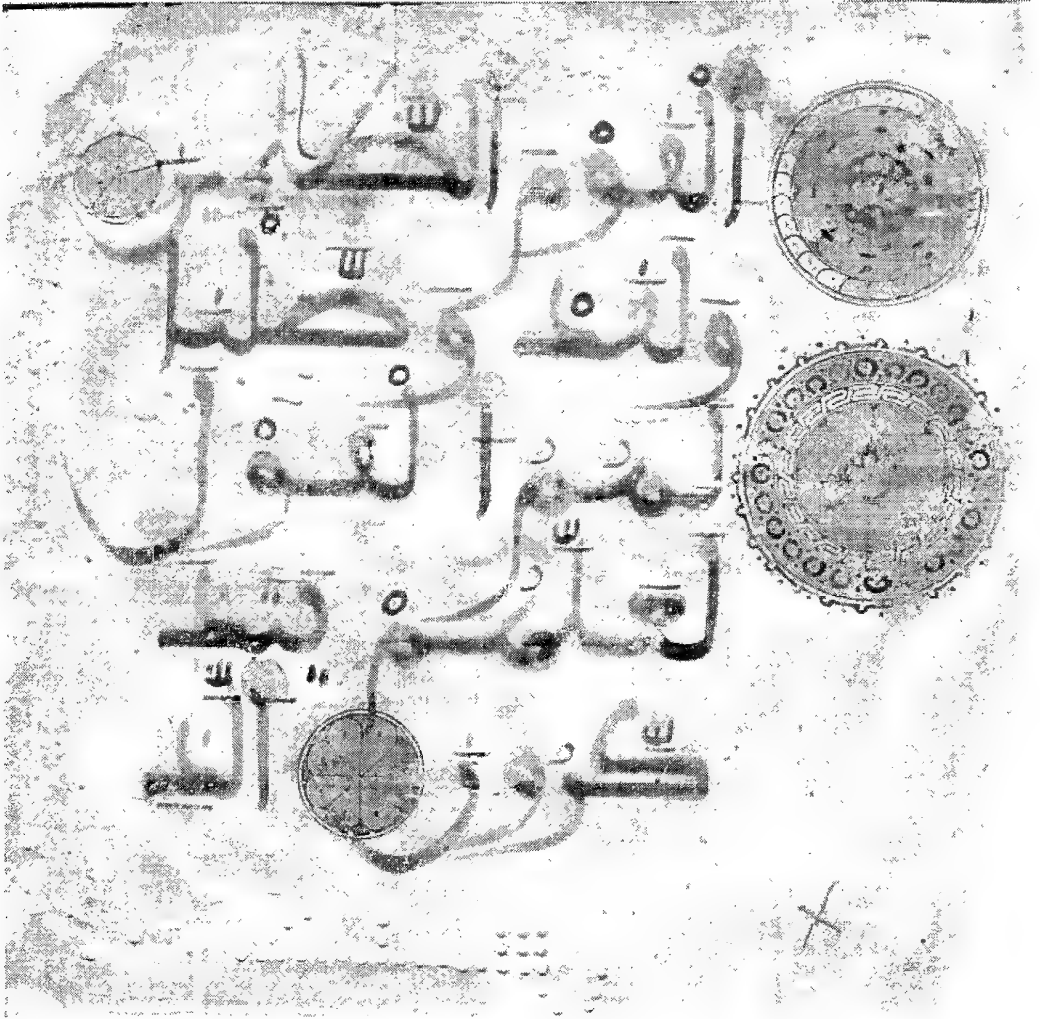 ٱلْقَوْمَ ٱلظَّـٰلِمِينَ
وَلَقَدْ وَصَّلْنَا
لَهُمُ ٱلْقَوْلَ
لَعَلَّهُمْ يَتَذَ
كَّرُونَ ٱلَّذِ